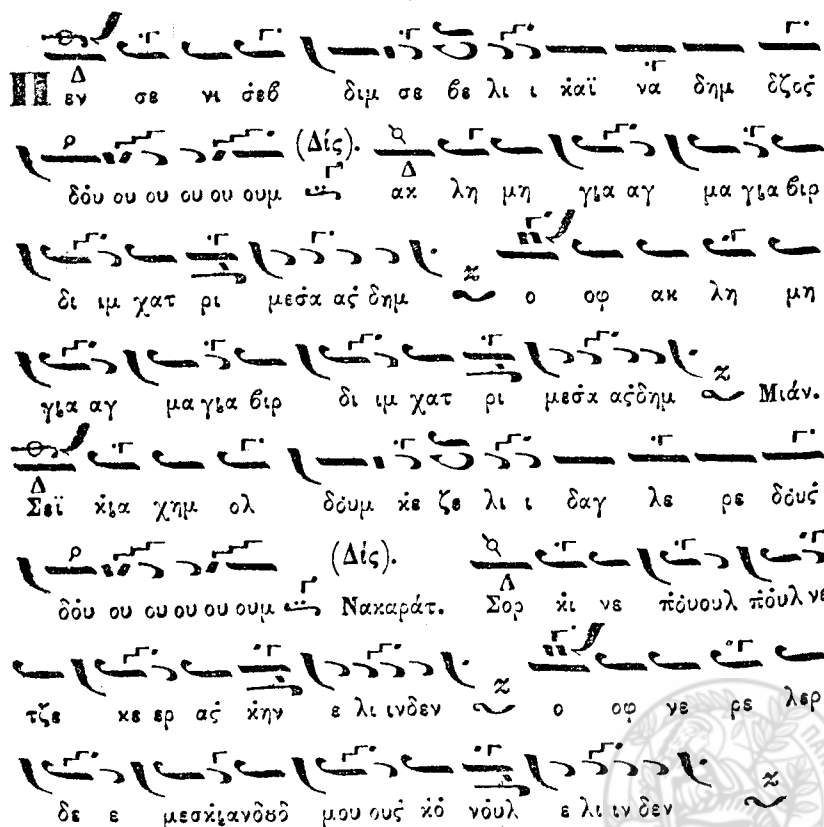 Π εν σε νι σ̇εβ διμ σε βε λι ι κ̇αϊ να δημ δζος̇
δο̇υ ου ου ου ου ουμ (Δίς). ακ λη μη γι̮α αγ μα γι̮α βιρ
δι ιμ χατ ρι μεσ̇α ας̇ δημ ο οφ ακ λη μη
γι̮α αγ μα γι̮α βιρ δι ιμ χατ ρι μεσ̇α ας̇δημ Μιάν.
Σεϊ κ̇ι̮α χημ ολ δο̇υμ κ̇ε ζε λι ι δαγ λε ρε δο̇υς̇
δο̇υ ου ου ου ου ουμ (Δίς). Νακαράτ. Σορ κ̇ι νε π̇ο̇υουλ π̇ο̇υλ νε
τζε κε ερ ας̇ κ̇ην ε λι ινδεν ο οφ νε ρε λερ
δε ε μεσκ̇ι̮ανδ̇ο̇υδ̇ μου ους̇ κ̇ο νο̇υλ ε λι ιν δεν